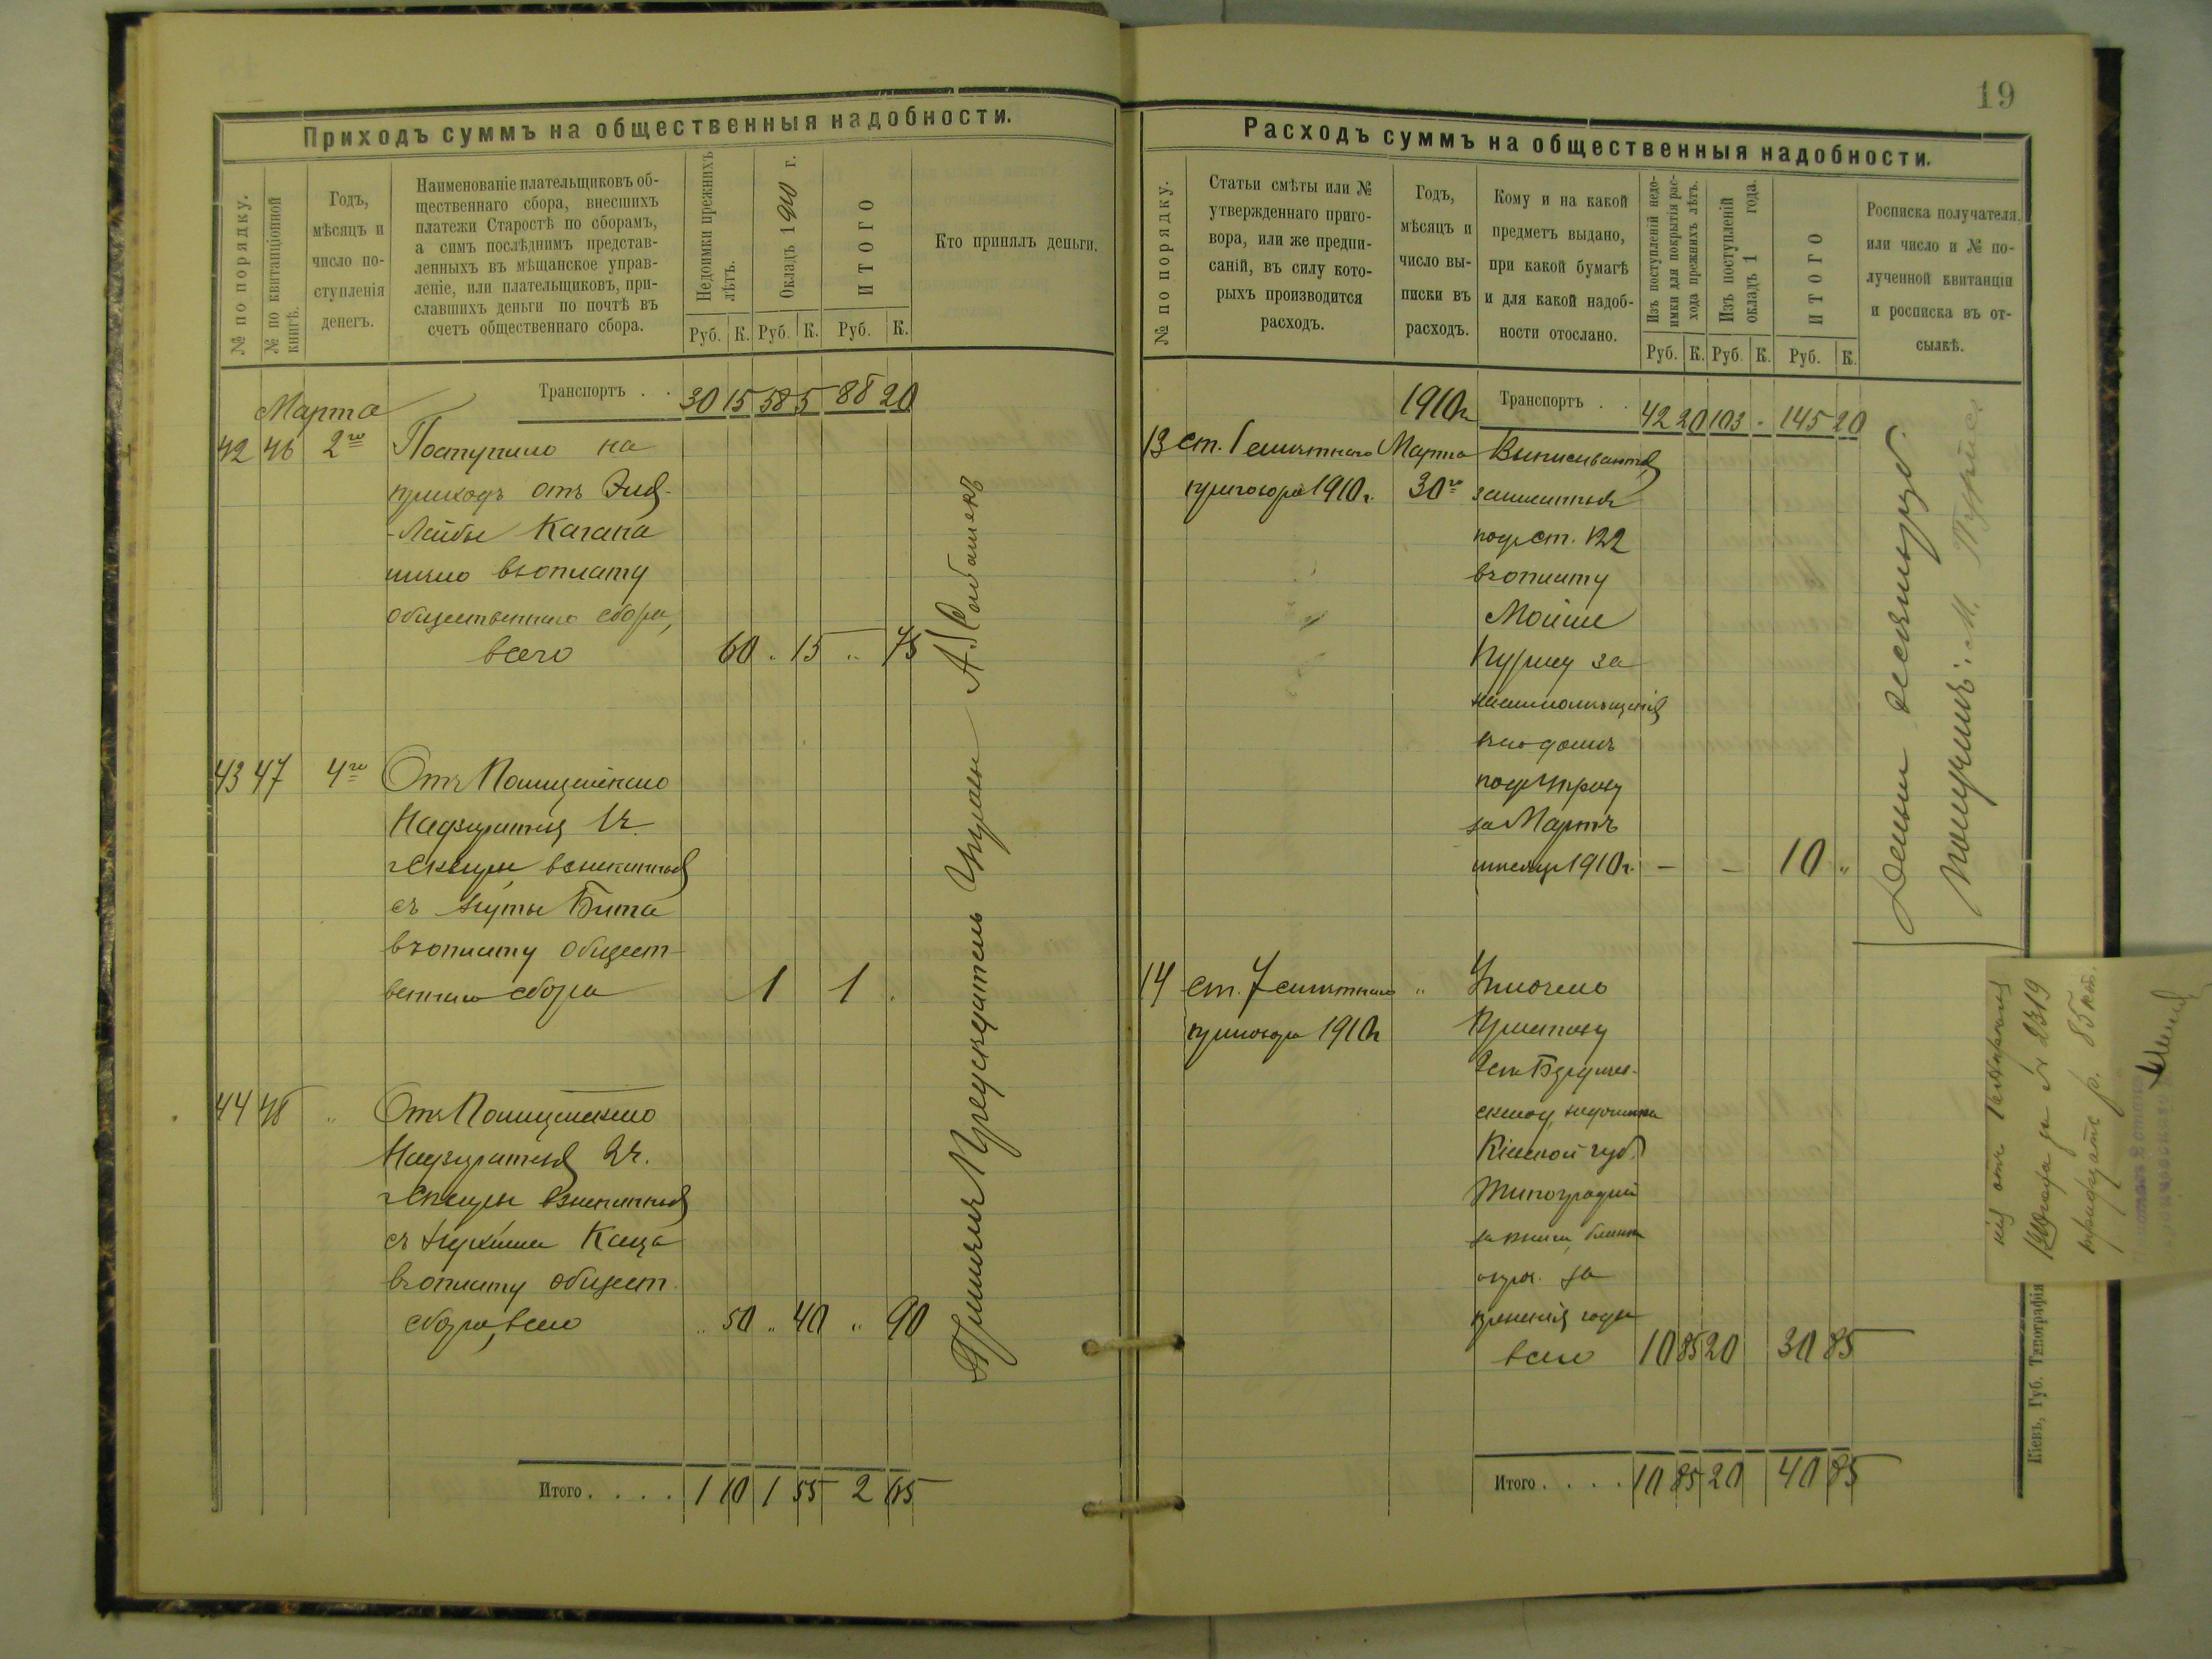 19
Приходъ суммъ на общественныя надобности.
№ по порядку.
№ по квитанціонной
книгѣ.
Годъ,
мѣсяцъ и
число по-
ступленія
денегъ.
Наименованіе плательщиковъ об-
щественнаго сбора, внесшихъ
платежи Старостѣ по сборамъ,
а симъ послѣднимъ представ-
ленныхъ въ мѣщанское управ-
леніе, или плательщиковъ, при-
славшихъ деньги по почтѣ въ
счетъ общественнаго сбора.
Недоимки прежнихъ
лѣтъ.
Окладъ 1910 г.
ИТОГО
Кто принялъ деньги.
Руб. К. Руб. К. Руб. К.
Транспортъ . . 30 15 58 5 88 20
Марта
42 46 2го Поступило на
приходъ отъ
Лейбы Кагана
въ оплату
общественнаго сбора,
всего 60 " 15 " 75
43 47 4го Отъ Полицейскаго
Надзирателя 1 ч.
г. Сквиры взысканныя
съ Бита
въ оплату общест-
веннаго сбора 1 1
44 48 " Отъ Полицейскаго
Надзирателя 2 ч.
г. Сквиры взысканныя
съ Каца
въ оплату общест.
сбора, всего " 50 " 40 " 90
Принялъ Предсѣдатель Управы А.
Итого . . . . 1 10 1 55 2 65
Расходъ суммъ на общественныя надобности.
№ по порядку.
Статьи смѣты или №
утвержденнаго приго-
вора, или же предпи-
саній, въ силу кото-
рыхъ производится
расходъ.
Годъ,
мѣсяцъ и
число вы-
писки въ
расходъ.
Кому и на какой
предметъ выдано,
при какой бумагѣ
и для какой надоб-
ности отослано.
Изъ поступленій недо-
имки для покрытія рас-
хода прежнихъ лѣтъ.
Изъ поступленій
окладъ 1 года.
ИТОГО
Росписка получателя,
или число и № по-
лученной квитанціи
и росписка въ от-
сылкѣ.
Руб. К. Руб. К. Руб. К.
1910 г. Транспортъ . . 42 20 103 - 145 20
13 ст. 1 смѣтнаго Марта Выписываются
приговора 1910 г. 30го записанныя
под ст. 122
въ оплату
Мойше
Пурису за
въ его домѣ
под Управу
за Мартъ
мѣсяцъ 1910 г. — — 10 "
Деньги десять руб.
получилъ: М. Пурисъ
14 ст. 7 смѣтнаго " Уплочено
приговора 1910 г. Приставу
Кіевской губ.
Типографіи
за книги, бланки
и проч. за
прежніе годы
всего 10 85 20 30 85
за № 2319
тридцать р. 85 коп.
Итого . . . . 10 85 20 40 85
Кіевъ, Губ. Типографія